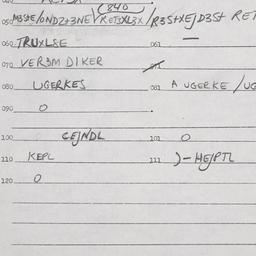 (840
050 M3StE/ONDZ+3NE RETJXL3X /R3S+XEJD3S+ RET
060 TRUXLSE 061
070 VERBM DIKER 071
080 UGERKES 081 A UGERKE /UG
090 O
100 CEJNDL 101 O
110 KEPL 111 )-HEJPTL
120 O